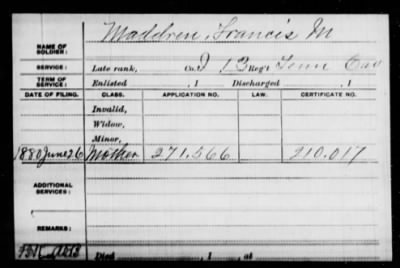 Maddren, Francis M
NAME OF SOLDIER:
SERVICE: Late rank, Co. D 13 Reg't Tenn Cav
TERM OF SERVICE: Enlisted , 1 Discharged , 1
DATE OF FILING. CLASS. APPLICATION NO. LAW. CERTIFICATE NO.
Invalid,
Widow,
Minor,
1880 June 26 Mother 271.566 210.017
ADDITIONAL SERVICES:
REMARKS:
Died , 1 at